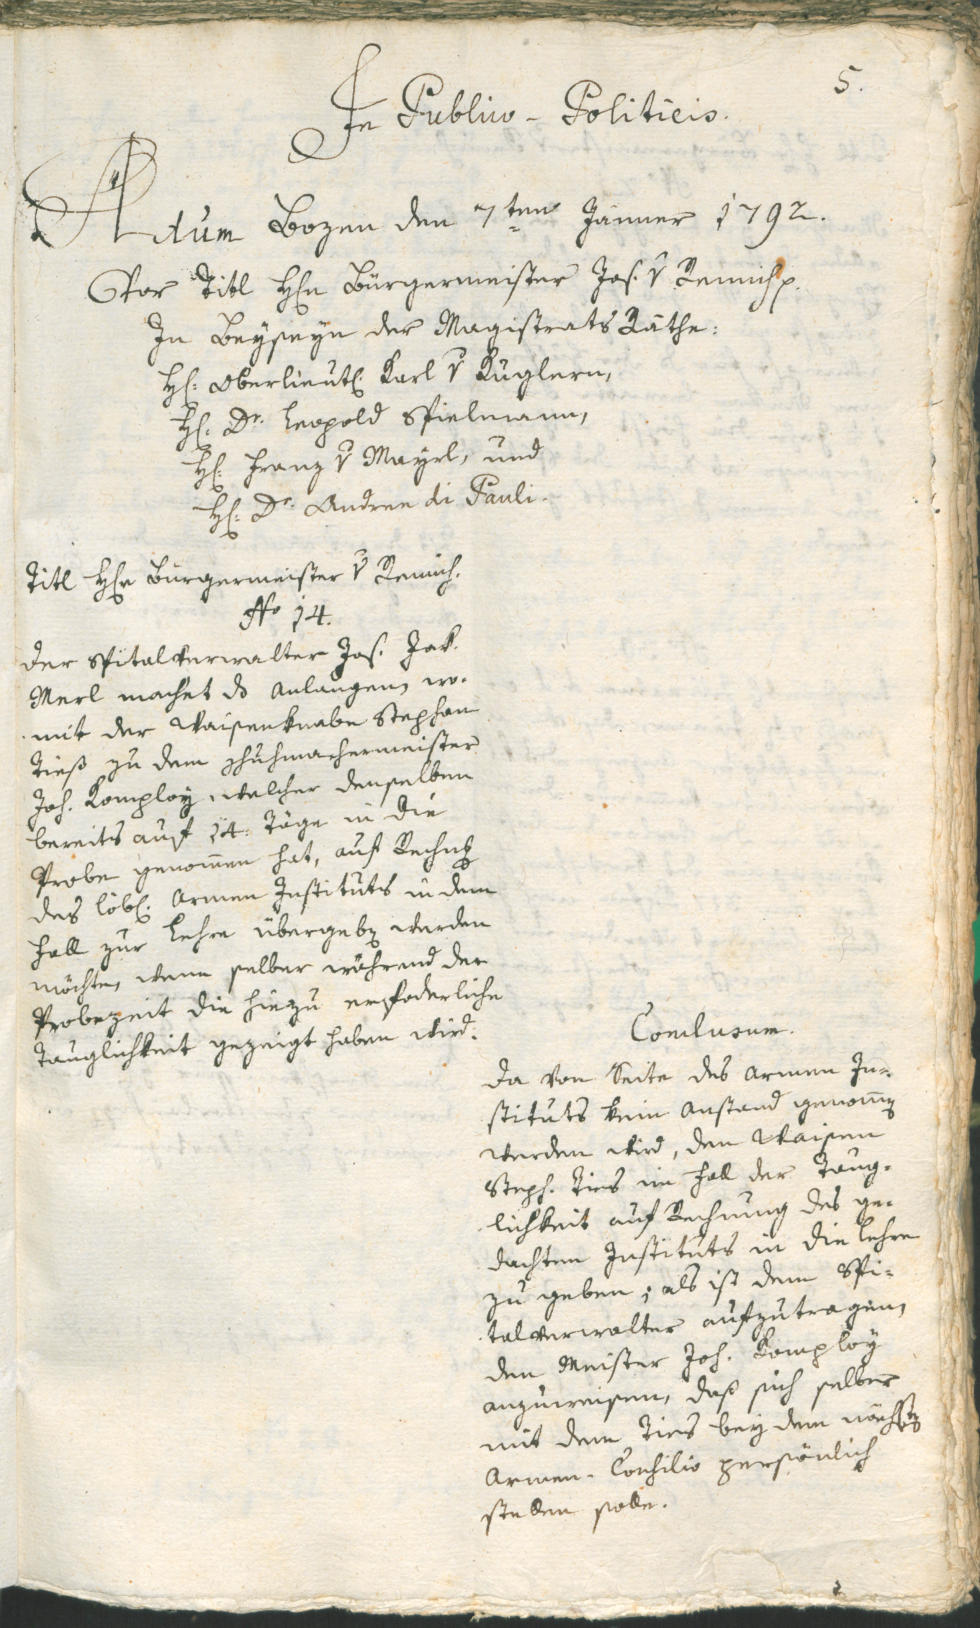 5.
In Publico-Politicis.
Actum Bozen den 7ten Jänner 1792.
Vor Titl Hrn Bürgermeister Jos. v Remich p.
In Beyseyn der Magistrats Räthe:
H: Oberlieut. Karl v Kuglern,
H: Dr. Leopold Spielmann,
H: Franz v Mayrl, und
H: Dr. Andree di Pauli.
Titl Hrn Bürgermeister v Remich.
No 14.
Der Spitalverwalter Jos. Jak.
Merl machet ds Anlangen, wo-
mit der Waisenknabe Stephan
Tieß zu dem Schuhmachermeister
Joh. Komploy, welcher denselben
bereits auf 14: Täge in die
Probe genommen hat, auf Rechng
des löbl. Armen Instituts in dem
Fall zur Lehre übergebn werden
möchte, wenn selber während der
Probezeit die hiezu erfoderliche
Tauglichkeit gezeigt haben wird.
Conclusum.
Da von Seite des Armen In-
stituts kein Anstand genommen
werden wird, den Waisen
Steph. Ties im Fall der Taug-
lichkeit auf Rechnung des ge-
dachten Instituts in die Lehre
zu geben; als ist dem Spi-
talverwalter aufzutragen,
den Meister Joh. Komploy
anzuweisen, daß sich selber
mit dem Ties bey dem nächsten
Armen-Consilio persönlich
stellen solle.